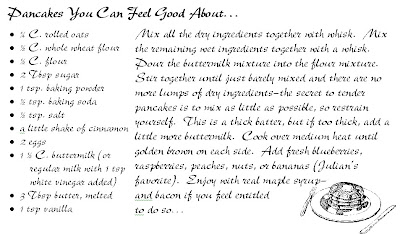 Pancakes You Can Feel Good About...
• ¾ C. rolled oats
• ¾ C. whole wheat flour
• ½ C. flour
• 2 Tbsp sugar
• 1 tsp. baking powder
• ½ tsp. baking soda
• ½ tsp. salt
• a little shake of cinnamon
• 2 eggs
• 1 ½ C. buttermilk (or
regular milk with 1 tsp
white vinegar added)
• 3 Tbsp butter, melted
• 1 tsp vanilla
Mix all the dry ingredients together with whisk. Mix
the remaining wet ingredients together with a whisk.
Pour the buttermilk mixture into the flour mixture.
Stir together until just barely mixed and there are no
more lumps of dry ingredients—the secret to tender
pancakes is to mix as little as possible, so restrain
yourself. This is a thick batter, but if too thick, add a
little more buttermilk. Cook over medium heat until
golden brown on each side. Add fresh blueberries,
raspberries, peaches, nuts, or bananas (Julian's
favorite). Enjoy with real maple syrup—
and bacon if you feel entitled
to do so...